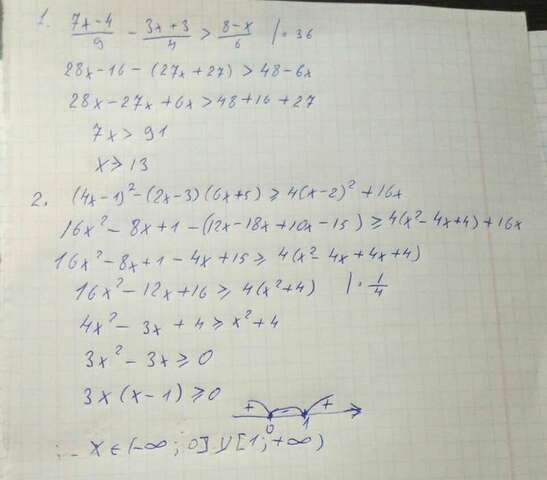 1. (7x-4)/9 - (3x+3)/4 > (8-x)/6 |· 36
28x-16-(27x+27)>48-6x
28x-27x+6x>48+16+27
7x>91
x>13
2. (4x-1)²-(2x-3)(6x+5)≥4(x-2)²+16x
16x²-8x+1-(12x-18x+10x-15)≥4(x²-4x+4)+16x
16x²-8x+1-4x+15≥4(x²-4x+4x+4)
16x²-12x+16≥4(x²+4) |· 1/4
4x²-3x+4≥x²+4
3x²-3x≥0
3x(x-1)≥0
+ - +
0 1
x∈(-∞;0]∪[1;+∞)